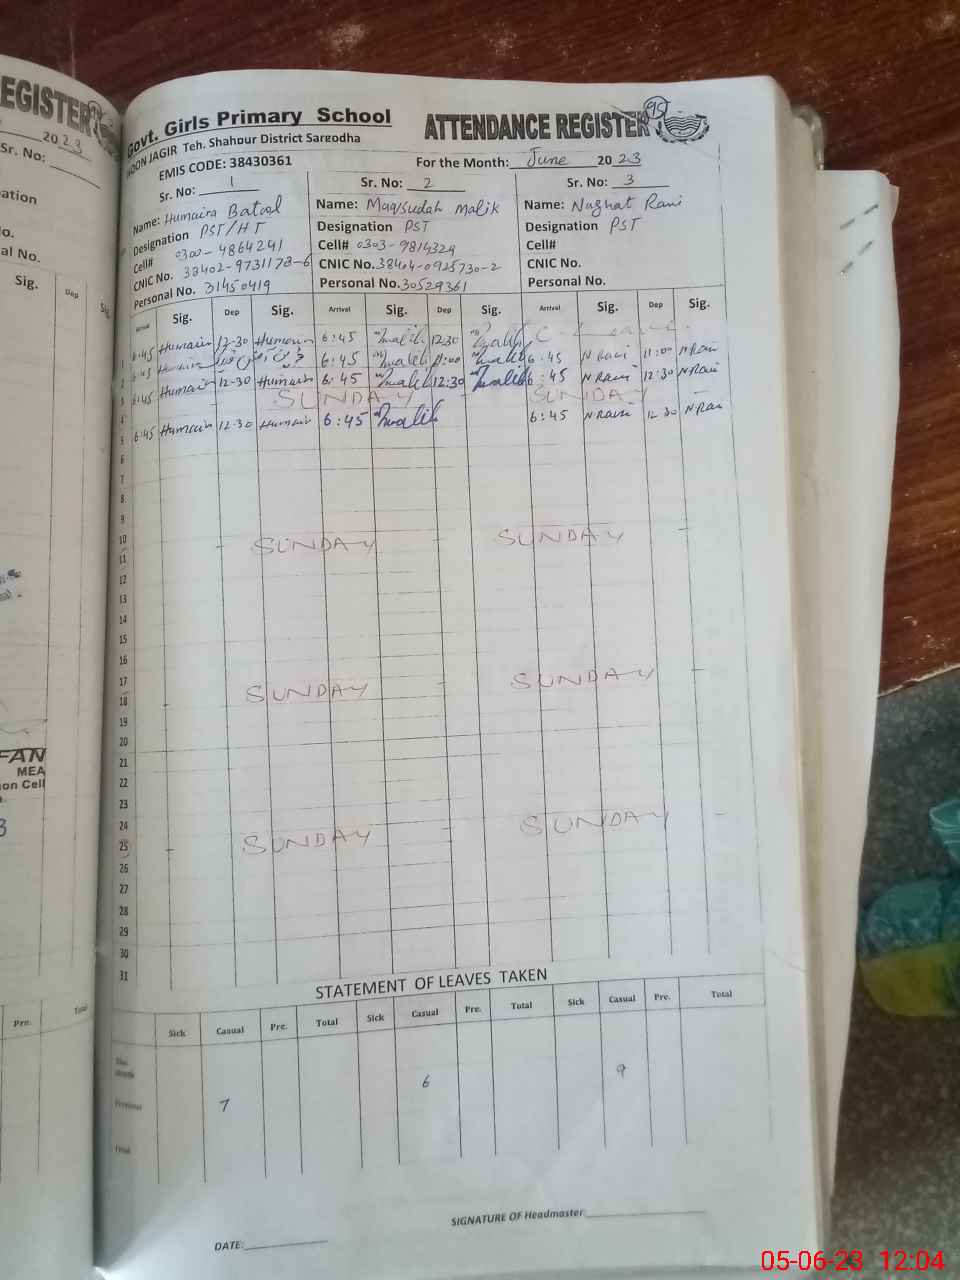 EGISTER
2023
Sr. No:
ation
lo.
al No.
Sig.
Dep
Sig.
FAN
MEA
ion Cell
3
Pre.
Total
95
Govt. Girls Primary School
ATTENDANCE REGISTER
NOON JAGIR Teh. Shahpur District Sargodha
EMIS CODE: 38430361
For the Month: June 2023
Sr. No: 1
Sr. No: 2
Sr. No: 3
Name: Humaira Batool
Name: Maqsudah Malik
Name: Nughat Rani
Designation PST/HT
Designation PST
Designation PST
Cell# 0300-4864241
Cell# 0303-9814329
Cell#
CNIC No. 38402-9731178-6
CNIC No. 38404-0925730-2
CNIC No.
Personal No. 31450419
Personal No. 30529361
Personal No.
Arrival Sig. Dep Sig. Arrival Sig. Dep Sig. Arrival Sig. Dep Sig.
1 6:45 Humaira 12-30 Humaira 6:45 Malik 12:30 Malik C-Leave
2 6:45 Humaira 6:45 Malik 11:00 Malik 6:45 N Rani 11:00 N Rani
3 6:45 Humaira 12-30 Humaira 6:45 Malik 12:30 Malik 6:45 N Rani 12:30 N Rani
4 SUNDAY SUNDAY
5 6:45 Humaira 12-30 Humaira 6:45 Malik 6:45 N Rani 12:30 N Rani
6
7
8
9
10
11 SUNDAY SUNDAY
12
13
14
15
16
17
18 SUNDAY SUNDAY
19
20
21
22
23
24
25 SUNDAY SUNDAY
26
27
28
29
30
31
STATEMENT OF LEAVES TAKEN
Sick Casual Pre. Total Sick Casual Pre. Total Sick Casual Pre. Total
This Month
Previous 7 6 9
Total
SIGNATURE OF Headmaster
DATE:
05-06-23 12:04